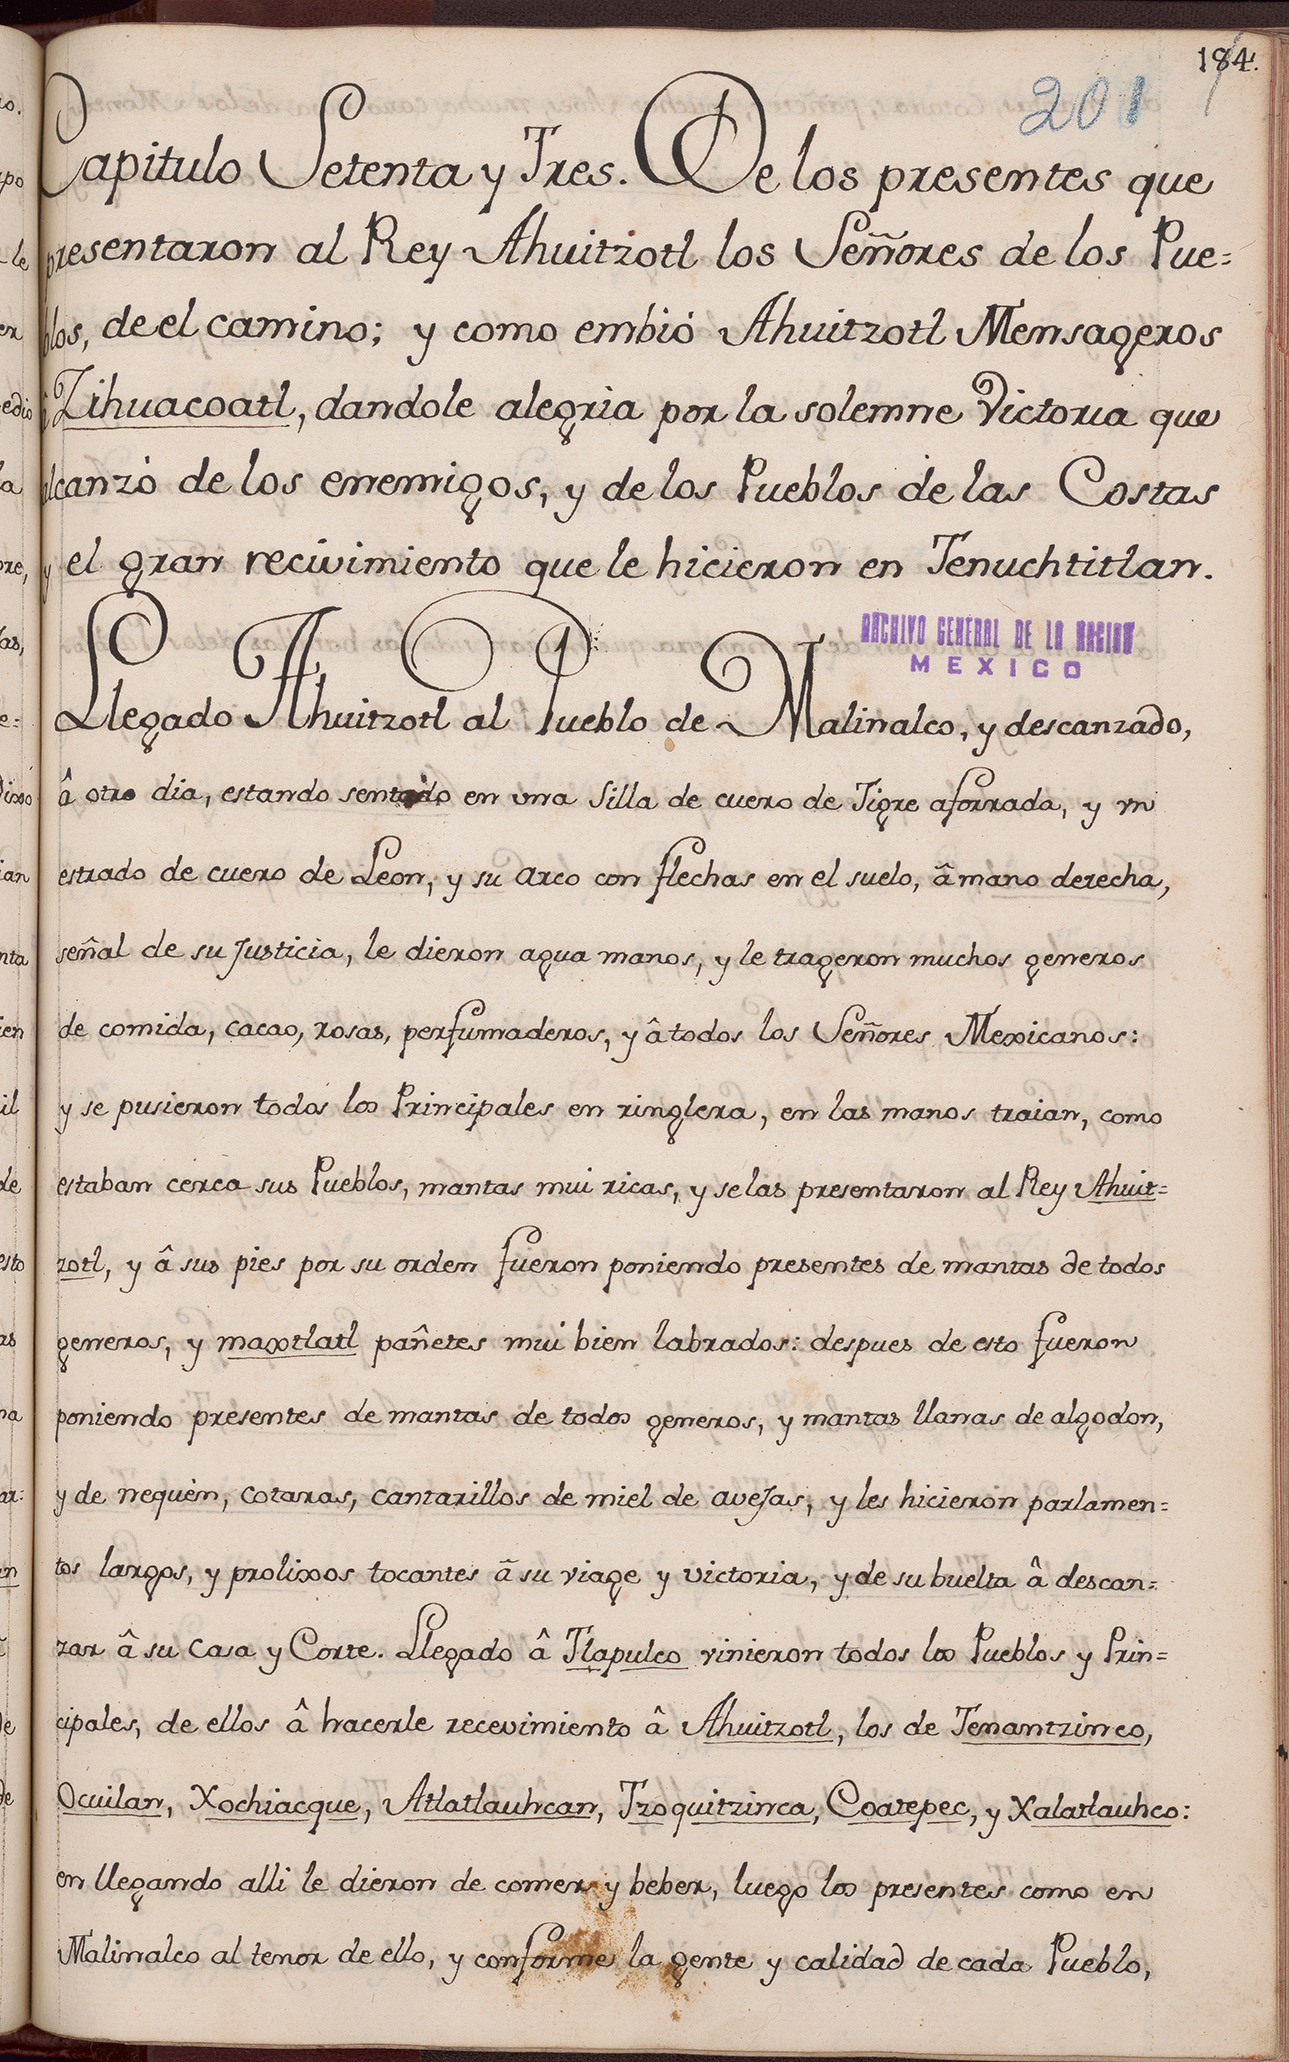 184.
201
Capitulo Setenta y Tres. De los presentes que
presentaron al Rey Ahuitzotl los Señores de los Pue=
blos, de el camino; y como embió Ahuitzotl Mensageros
â Zihuacoatl, dandole alegria por la solemne Victoria que
alcanzó de los enemigos, y de los Pueblos de las Costas
y el gran recivimiento que le hicieron en Tenuchtitlan.
ARCHIVO GENERAL DE LA NACION
MEXICO
Llegado Ahuitzotl al Pueblo de Malinalco, y descanzado,
â otro dia, estando sentado en una Silla de cuero de Tigre aforrada, y vn
estrado de cuero de Leon, y su arco con flechas en el suelo, â mano derecha,
señal de su Justicia, le dieron agua manos, y le trageron muchos generos
de comida, cacao, rosas, perfumaderos, y â todos los Señores Mexicanos:
y se pusieron todos los Principales en ringlera, en las manos traian, como
estaban cerca sus Pueblos, mantas mui ricas, y se las presentaron al Rey Ahuit=
zotl, y â sus pies por su orden fueron poniendo presentes de mantas de todos
generos, y maxtlatl pañetes mui bien labrados: despues de esto fueron
poniendo presentes de mantas de todos generos, y mantas llanas de algodon,
y de nequèn, cotaras, cantarillos de miel de aveJas, y les hicieron parlamen=
tos largos, y prolixos tocantes â su viage y victoria, y de su buelta â descan=
zar â su Casa y Corte. Llegado â Tlapulco vinieron todos los Pueblos y Prin=
cipales, de ellos â hacerle recevimiento â Ahuitzotl, los de Tenantzinco,
Ocuilan, Xochiacque, Atlatlauhcan, Tzoquitzinca, Coatepec, y Xalatlauhco:
en llegando alli le dieron de comer y beber, luego los presentes como en
Malinalco al tenor de ello, y conforme la gente y calidad de cada Pueblo,